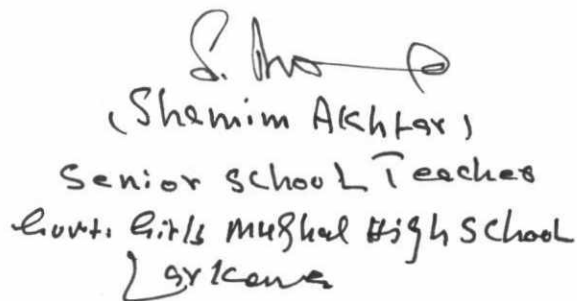 (Shamim Akhtar)
Senior School Teacher
Govt. Girls Mughal High School
Larkana